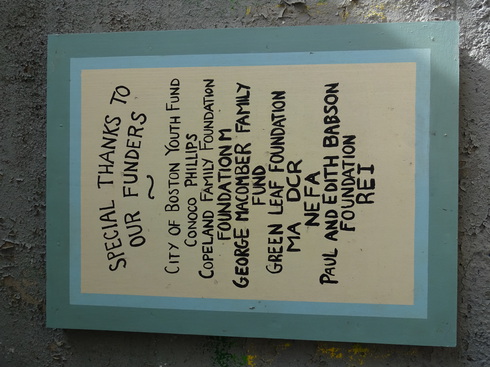 SPECIAL THANKS TO
OUR FUNDERS
~
CITY OF BOSTON YOUTH FUND
CONOCO PHILLIPS
COPELAND FAMILY FOUNDATION
FOUNDATION M
GEORGE MACOMBER FAMILY
FUND
GREEN LEAF FOUNDATION
MA DCR
NEFA
PAUL AND EDITH BABSON
FOUNDATION
REI